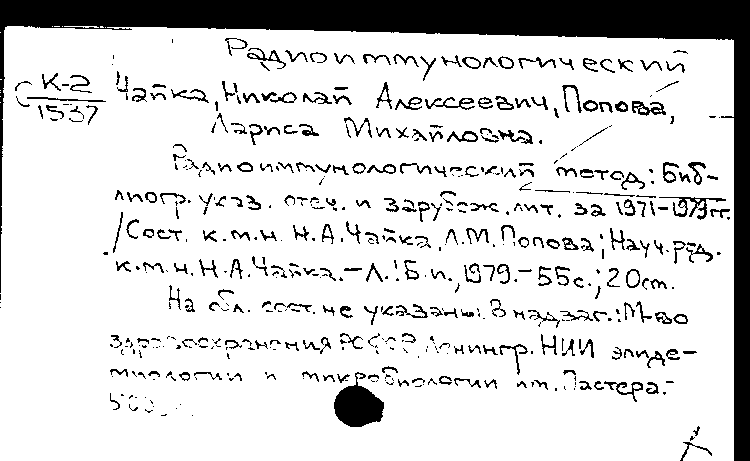 Радиоиммунологический
С К-2
1537
Чайка, Николай Алексеевич, Попова,
Лариса Михайловна.
Радиоиммунологический метод: Биб-
лиогр. указ. отеч. и зарубеж. лит. за 1971-1979 гг.
/Сост. к.м.н. Н.А. Чайка, Л.М. Попова; Науч. ред.
к.м.н. Н.А. Чайка. – Л.: Б.и., 1979. – 55с.; 20см.
На обл. сост. не указаны. В надзаг.: М-во
здравоохранения РСФСР, Ленингр. НИИ эпиде-
миологии и микробиологии им. Пастера. –